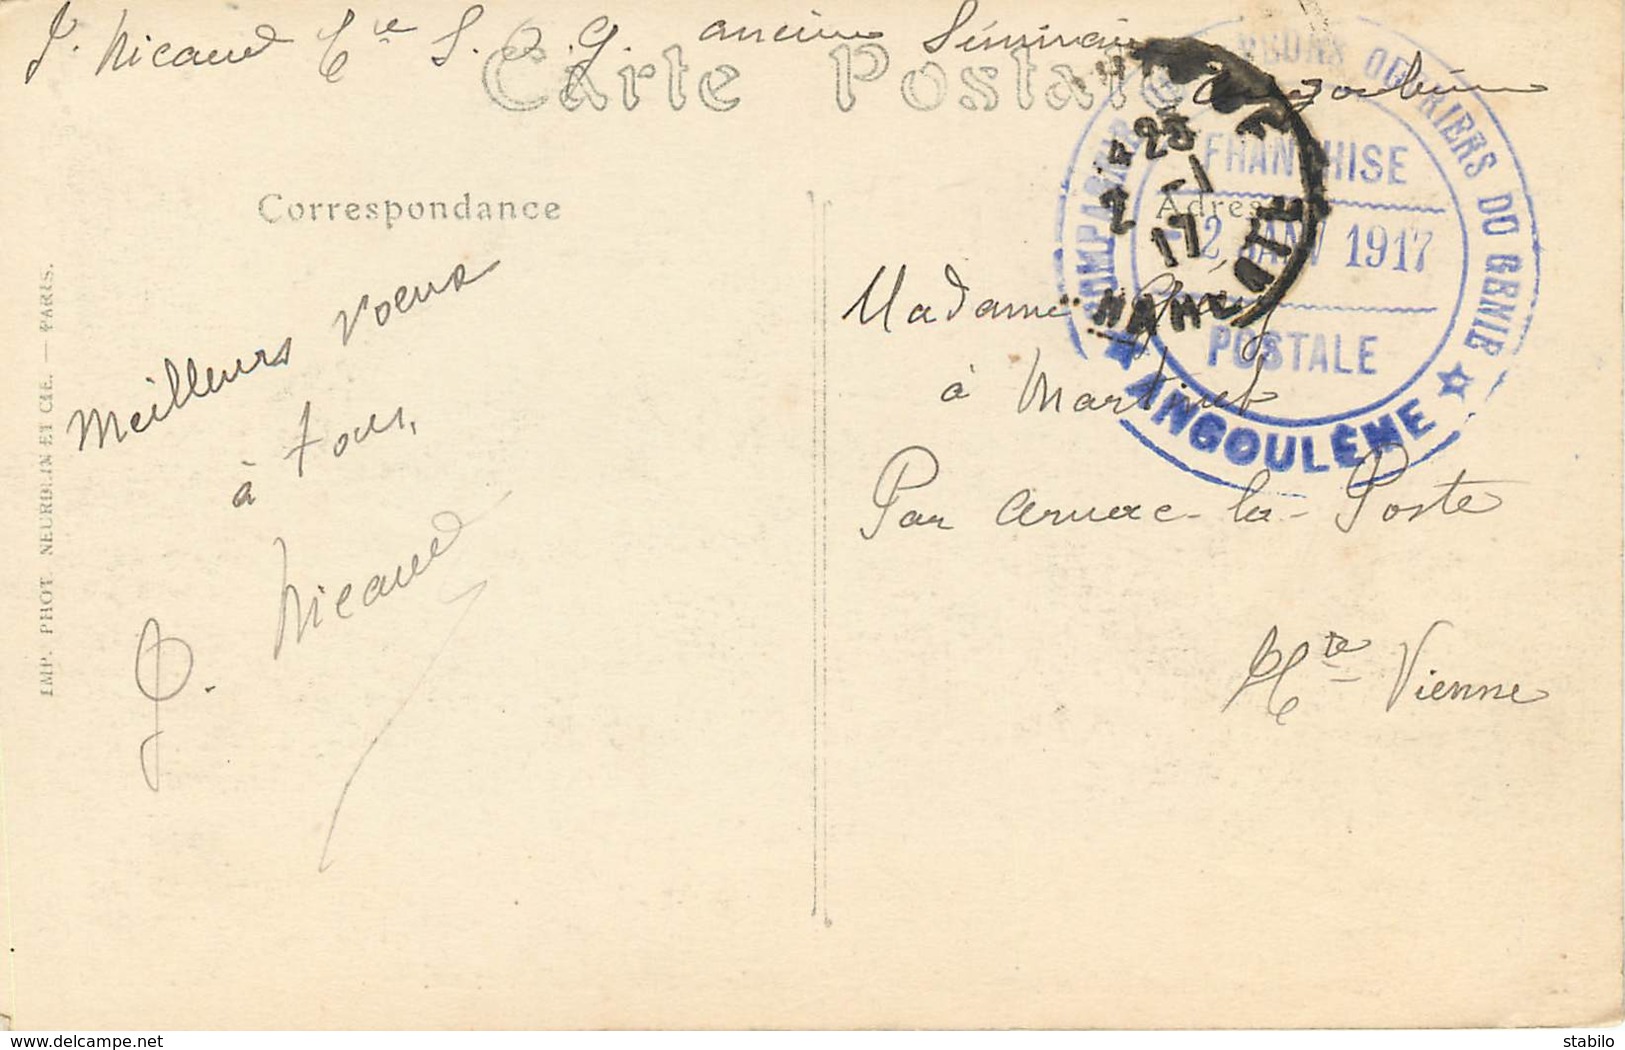 J. Nicaud Cie S. O. G. ancien Séminaire
Angoulême
Carte Postale
Correspondance
Adresse
Meilleurs voeux
à tous,
J. Nicaud
Madame
à Martinet
Par Arnac-la-Poste
Hte Vienne
OUVRIERS DU GENIE
FRANCHISE
2 JANV 1917
POSTALE
★ ANGOULÊME ★
4 25
2 -1
17
CHARENTE
IMP. PHOT. NEURDEIN ET CIE. — PARIS.
© delcampe.net
stabilo